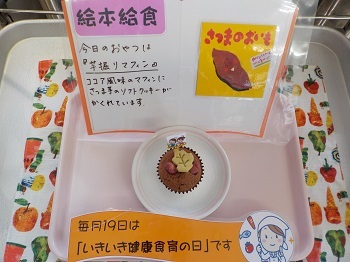 絵本給食
今日のおやつは
『芋掘りマフィン』
ココア風味のマフィンに
さつま芋のソフトクッキーが
かくれています
さつまのおいも
毎月19日は
「いきいき健康食育の日」です